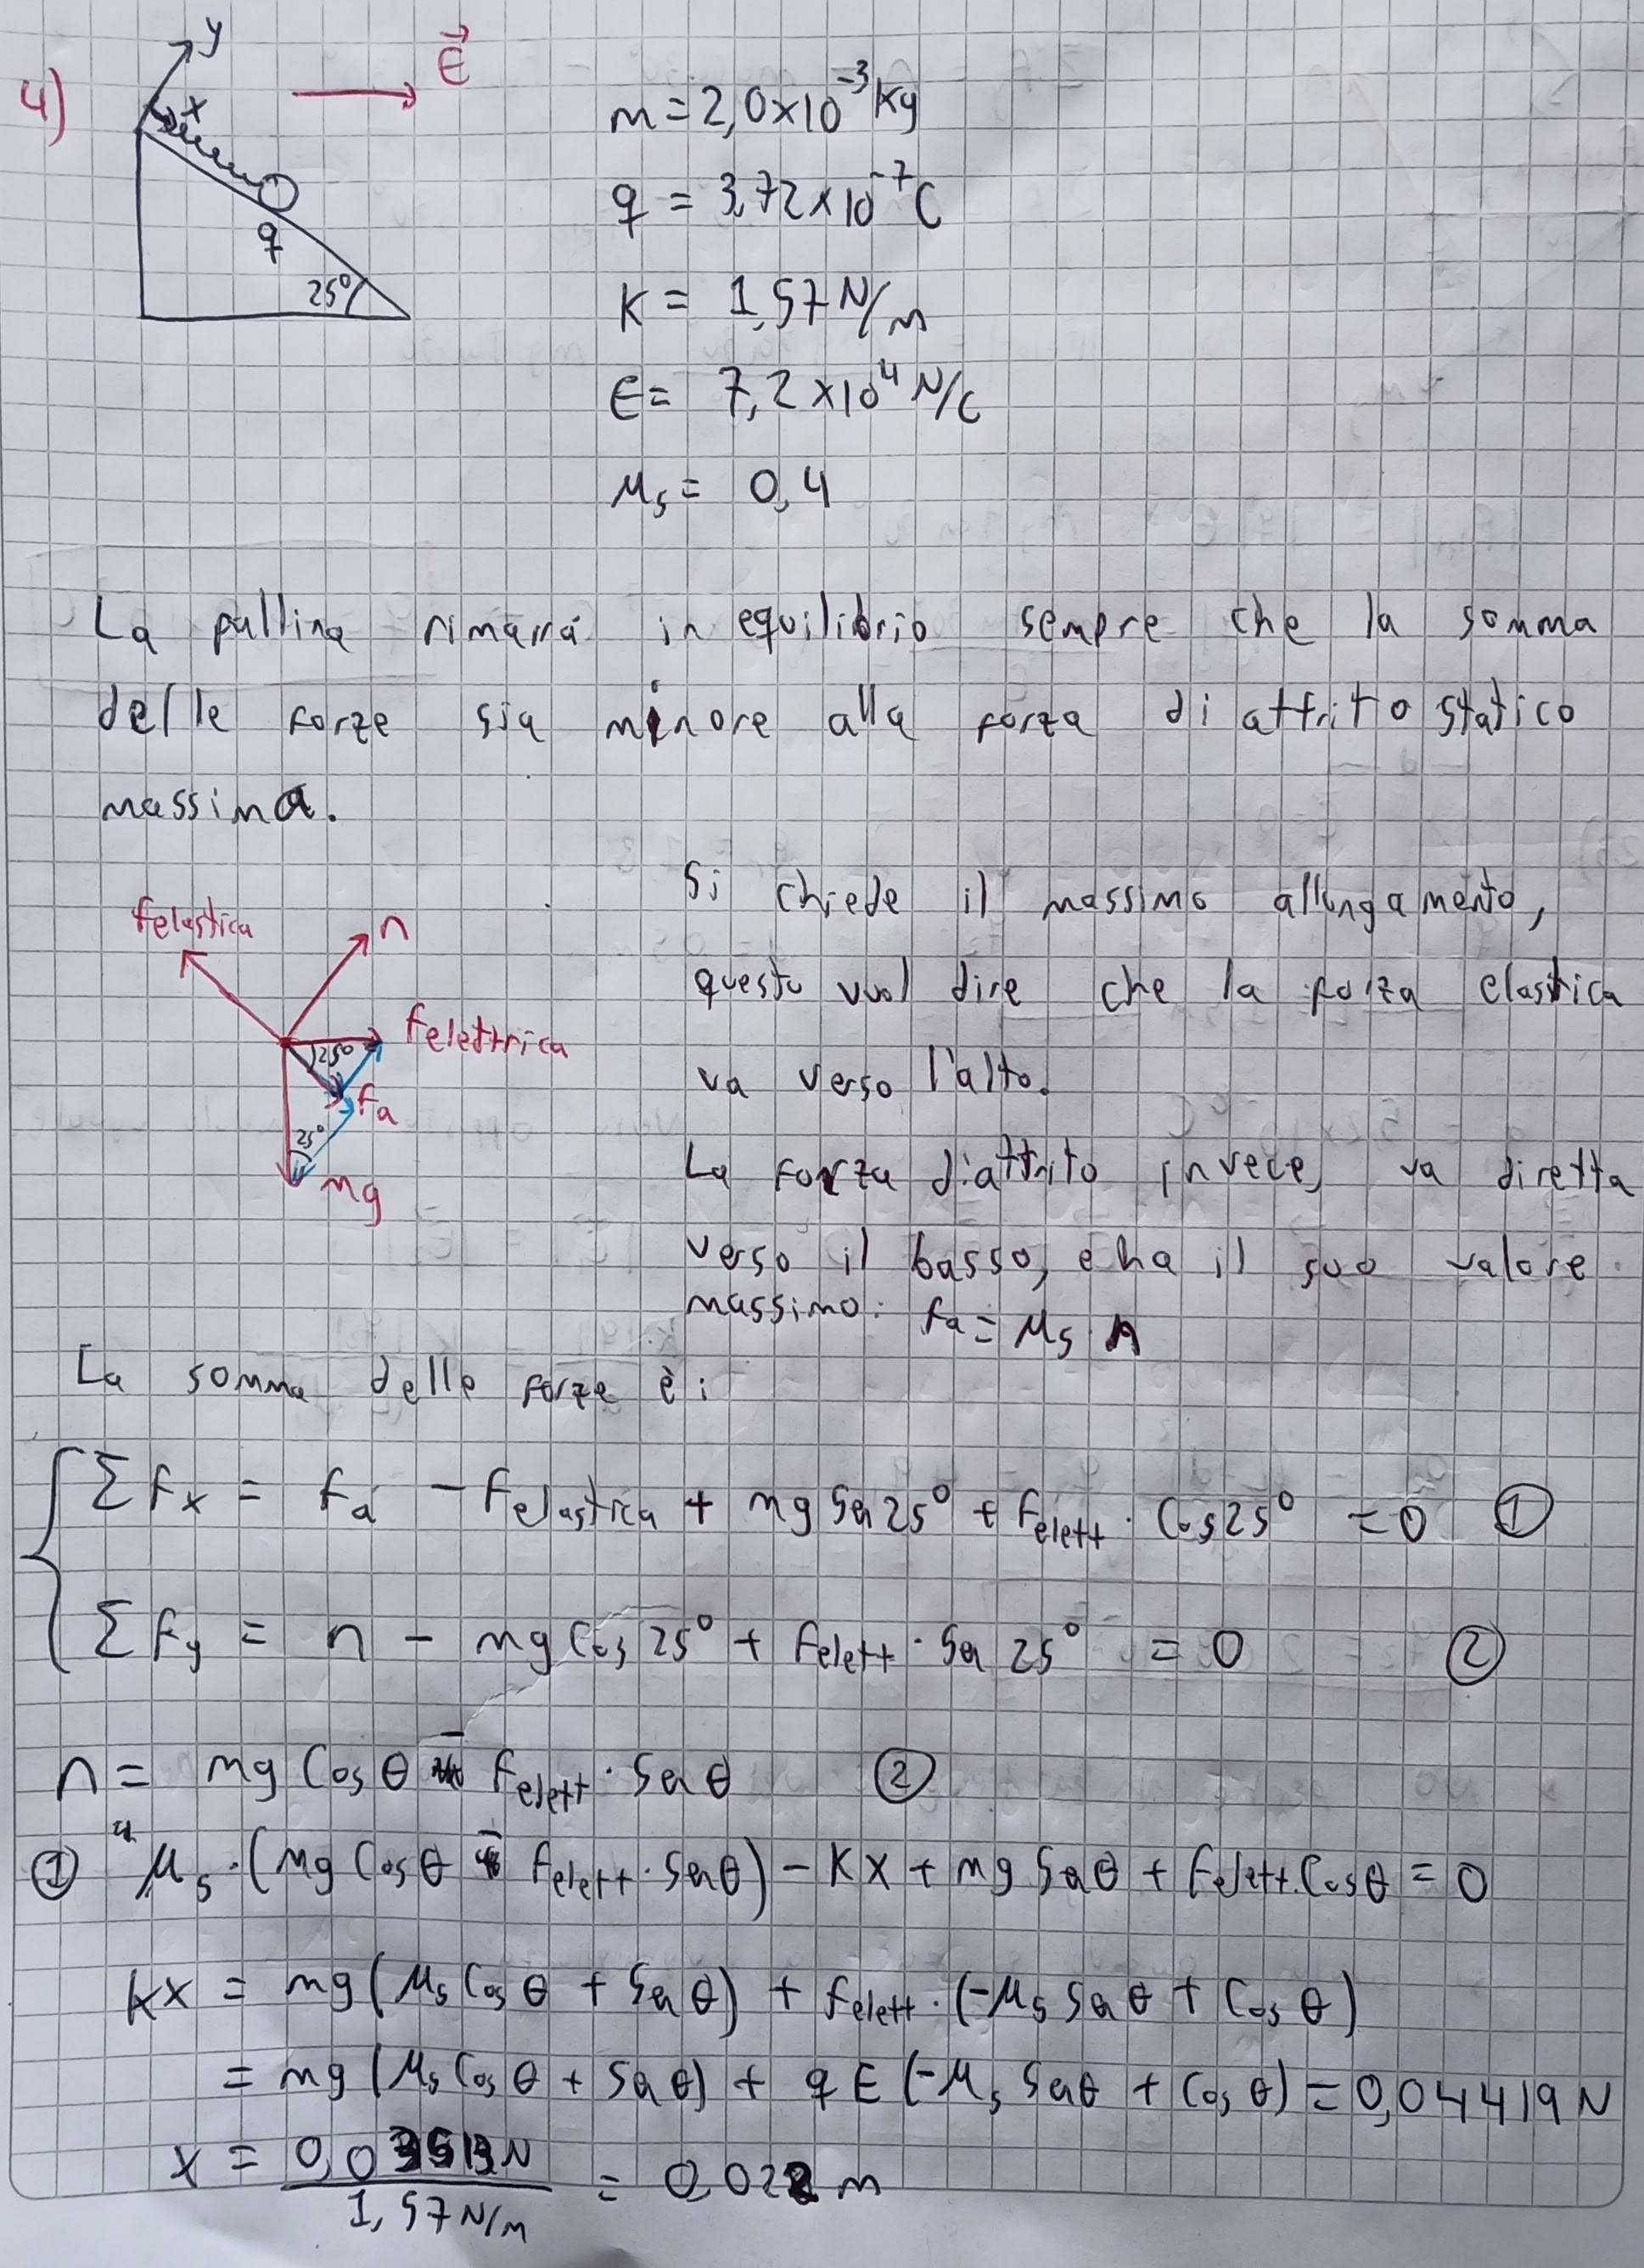 4)
y
x
E
q
25°
m = 2,0×10⁻³ kg
q = 3,72×10⁻⁷ C
K = 1,57 N/m
E = 7,2×10⁴ N/C
μs = 0,4
La pallina rimarrá in equilibrio sempre che la somma
delle forze sia minore alla forza di attrito statico
massima.
Felastica
n
Felettrica
25°
fa
25°
mg
Si chiede il massimo allungamento,
questo vuol dire che la forza elastica
va verso l'alto.
La forza d'attrito invece, va diretta
verso il basso, e ha il suo valore
massimo: fa = μs · n
La somma delle forze è:
ΣFx = fa - Felastica + mg Sen 25° + Felett · Cos 25° = 0 ①
ΣFy = n - mg Cos 25° + Felett · Sen 25° = 0 ②
n = mg Cos θ - Felett · Sen θ ②
① μs · (mg Cos θ - Felett · Sen θ) - Kx + mg Sen θ + Felett · Cos θ = 0
Kx = mg (μs Cos θ + Sen θ) + Felett · (-μs Sen θ + Cos θ)
= mg (μs Cos θ + Sen θ) + qE (-μs Sen θ + Cos θ) = 0,04419 N
x = N / 1,57 N/m = 0,028 m